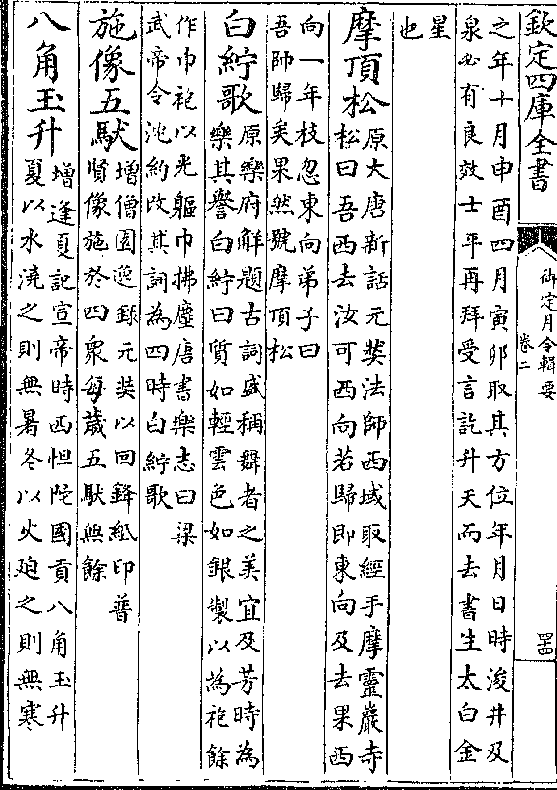 欽定四庫全書
御定月令輯要
卷二
四四
之年十月申酉四月寅卯取其方位年月日時浚井及
泉必有良效士平再拜受言訖升天而去書生太白金
星
也
摩頂松
原大唐新話元奘法師西域取經手摩靈巖寺
松曰吾西去汝可西向若歸即東向及去果西
向一年枝忽東向弟子曰
吾師歸矣果然號摩頂松
白紵歌
原樂府解題古詞盛稱舞者之美宜及芳時為
樂其譽白紵曰質如輕雲色如銀製以為袍餘
作巾袍以光軀巾拂塵唐書樂志曰梁
武帝令沈約改其詞為四時白紵歌
施像五馱
增僧園逸録元奘以回鋒紙印普
賢像施於四衆每歳五馱無餘
八角玉升
增逢夏記宣帝時西怛陀國貢八角玉升
夏以水澆之則無暑冬以火廹之則無寒